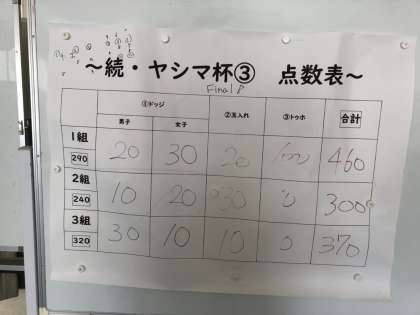 ～続・ヤシマ杯③ 点数表～
Final
①ドッジ ②玉入れ ③トゥホ 合計
男子 女子
1組 290 20 30 20 100 460
2組 240 10 20 30 0 300
3組 320 30 10 10 0 370